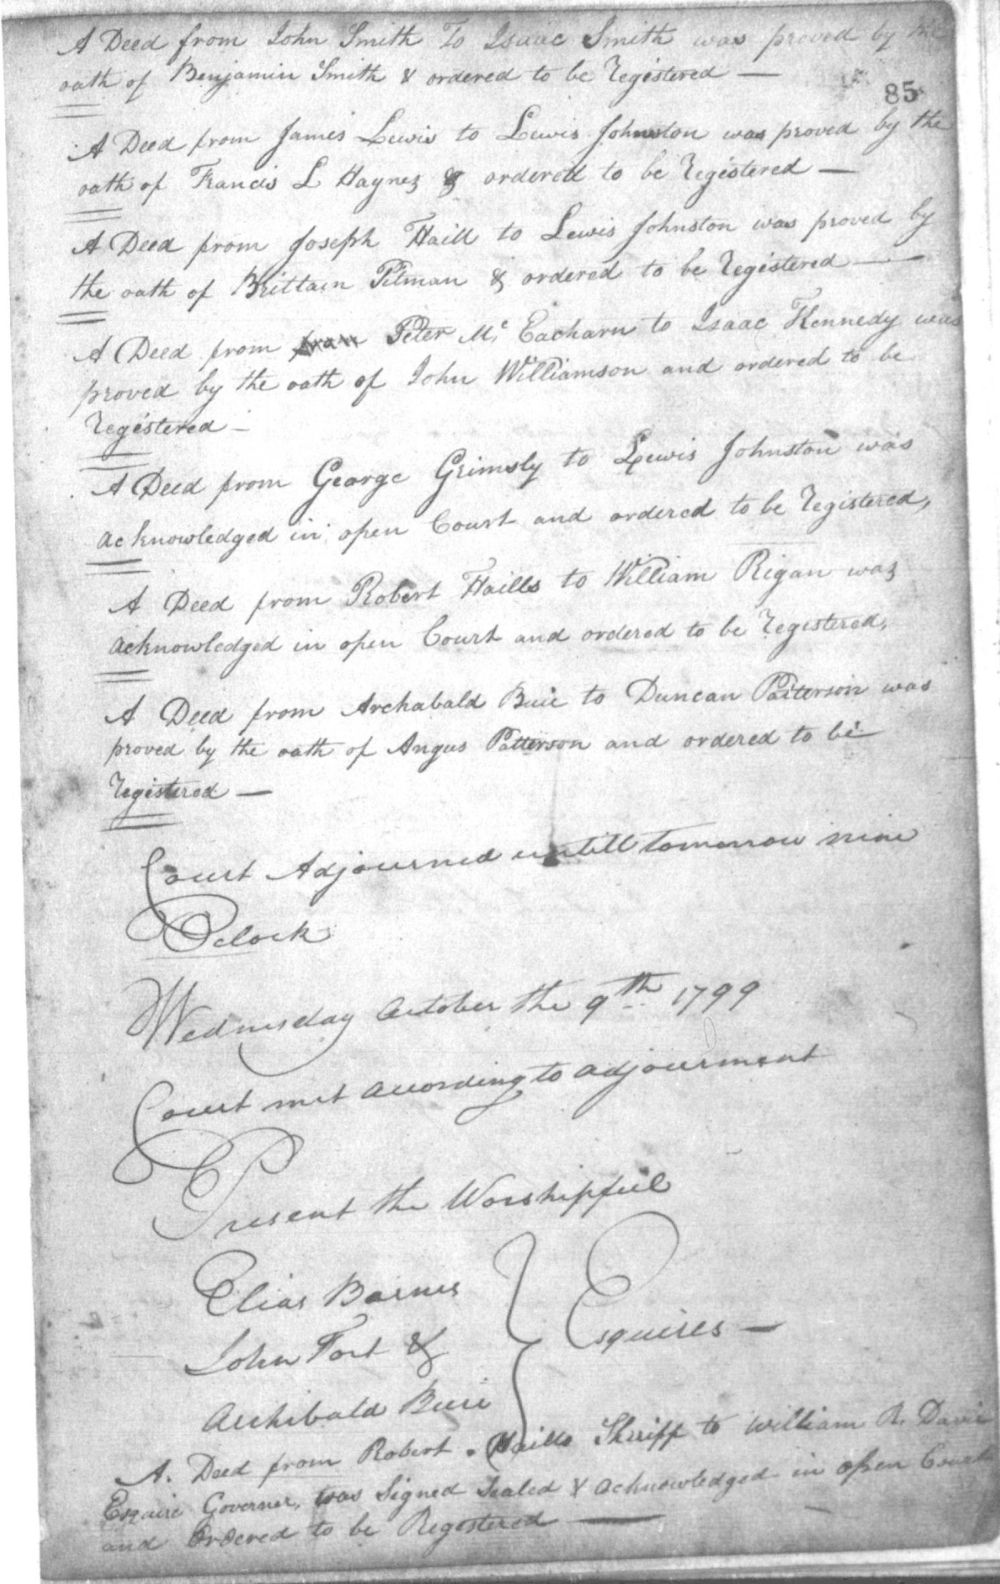 A Deed from John Smith To Isaac Smith was proved by the
oath of Benjamin Smith & ordered to be Registered —
85
A Deed from James Lewis to Lewis Johnston was proved by the
oath of Francis L Haynes & ordered to be Registered —
A Deed from Joseph Haill to Lewis Johnston was proved by
the oath of Brittain Pitman & ordered to be Registered —
A Deed from Peter Mc Eacharn to Isaac Kennedy was
proved by the oath of John Williamson and ordered to be
Registered —
A Deed from George Grimsly to Lewis Johnston was
acknowledged in open Court and ordered to be Registered,
A Deed from Robert Haills to William Rigan was
acknowledged in open Court and ordered to be Registered,
A Deed from Archabald Buie to Duncan Patterson was
proved by the oath of Angus Patterson and ordered to be
Registered —
Court Adjourned untill tomorrow nine
Oclock
Wednesday October the 9th 1799
Court met according to adjourment
Present the Worshipfull
Elias Barnes
John Fort & } Esquires —
Archibald Buie
A. Deed from Robert Haills Sheriff to William R. Davie
Esquire Governer, was Signed Sealed & acknowledged in open Court
and Ordered to be Regostered —